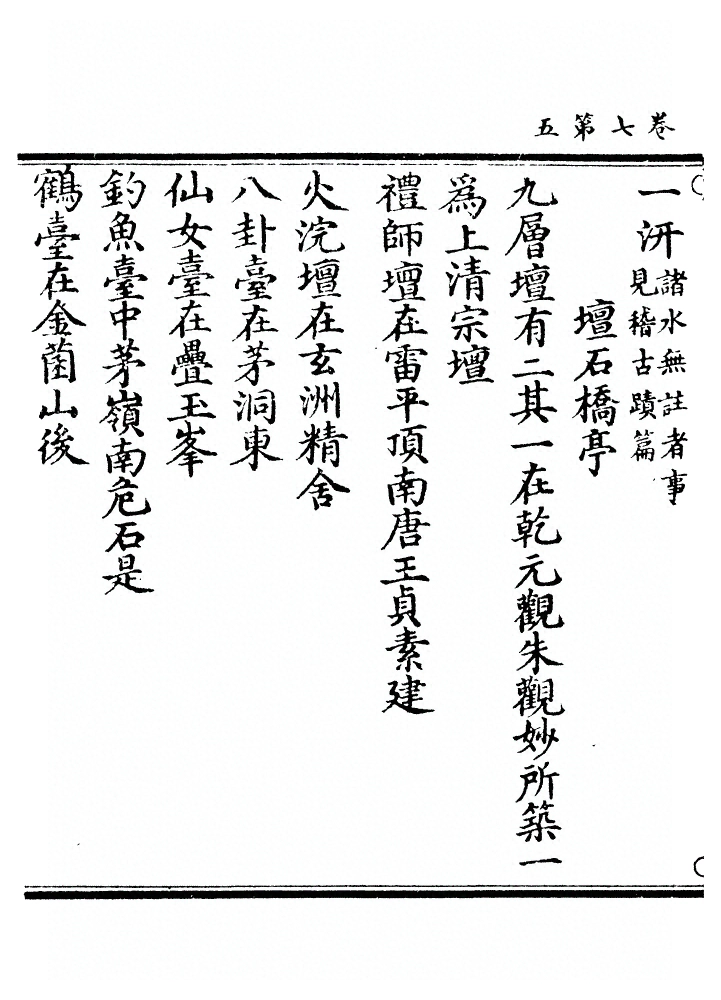 卷七第五
一汧諸水無註者事
見稽古蹟篇
壇石橋亭
九層壇有二其一在乾元觀朱觀妙所築一
為上清宗壇
禮師壇在雷平頂南唐王貞素建
火浣壇在玄洲精舍
八卦臺在茅洞東
仙女臺在疊玉峯
釣魚臺中茅嶺南危石是
鶴臺在金菌山後